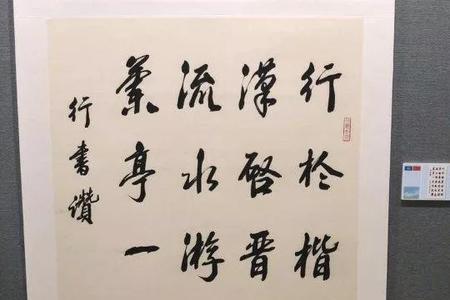 行於楷
漢啓晋
流水游
蘭亭一
行書讚